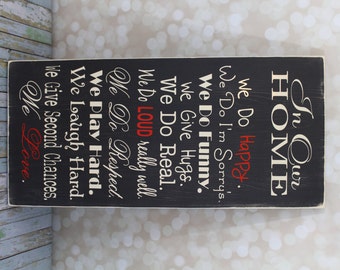 In Our
HOME
We Do Happy.
We Do I'm Sorry's.
We Do Funny.
We Give Hugs.
We Do Real.
We Do LOUD really well.
We Do Respect.
We Play Hard.
We Laugh Hard.
We Give Second Chances.
We Love.